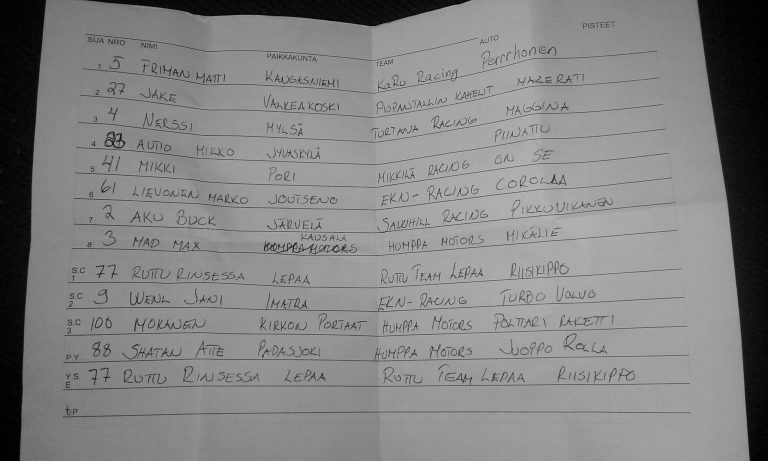 SIJA NRO NIMI PAIKKAKUNTA TEAM AUTO PISTEET
1 5 FRIMAN MATTI KANGASNIEMI KaRu Racing Perrrhonen
2 27 JAKE VALKEAKOSKI PUPANTALLIN KAHELIT MAZERATI
3 4 NERSSI MYLSÄ TURTANA RACING MAGGINA
4 AUTIO MIKKO JYVÄSKYLÄ PIINATTU
5 41 MIKKI PORI MIKKILÄ RACING ON SE
6 61 LIEVONEN MARKO JOUTSENO EKN-RACING COROLLA
7 2 AKU BUCK JÄRVELÄ SAWHILL RACING PIKKUVIKANEN
8 3 MAD MAX KAUSALA HUMPPA MOTORS MIKÄLIE
S.C 1 77 RUTTU RINSESSA LEPAA RUTTU TEAM LEPAA RIISIKIPPO
S.C 2 9 WENL JANI IMATRA EKN-RACING TURBO VOLVO
S.C 3 100 MOKANEN KIRKON PORTAAT HUMPPA MOTORS POLTTARI RAKETTI
P.Y. 88 SHATAN ATTE PADASJOKI HUMPPA MOTORS JUOPPO ROLLA
Y.S. E 77 RUTTU RINSESSA LEPAA RUTTU TEAM LEPAA RIISIKIPPO
t.P